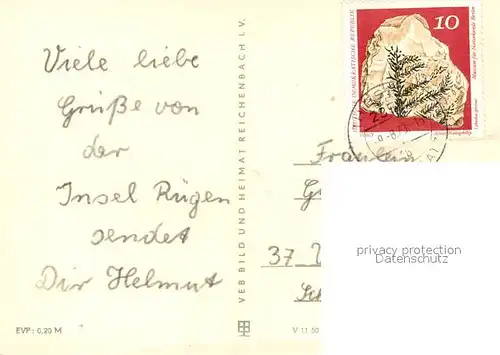 Viele liebe
Grüße von
der
Insel Rügen
sendet
Dir Helmut
EVP: 0,20 M
VEB BILD UND HEIMAT REICHENBACH I. V.
V 11 50
10
DEUTSCHE DEMOKRATISCHE REPUBLIK
Museum für Naturkunde Berlin
Fräulein
G
37
Sc
privacy protection
Datenschutz